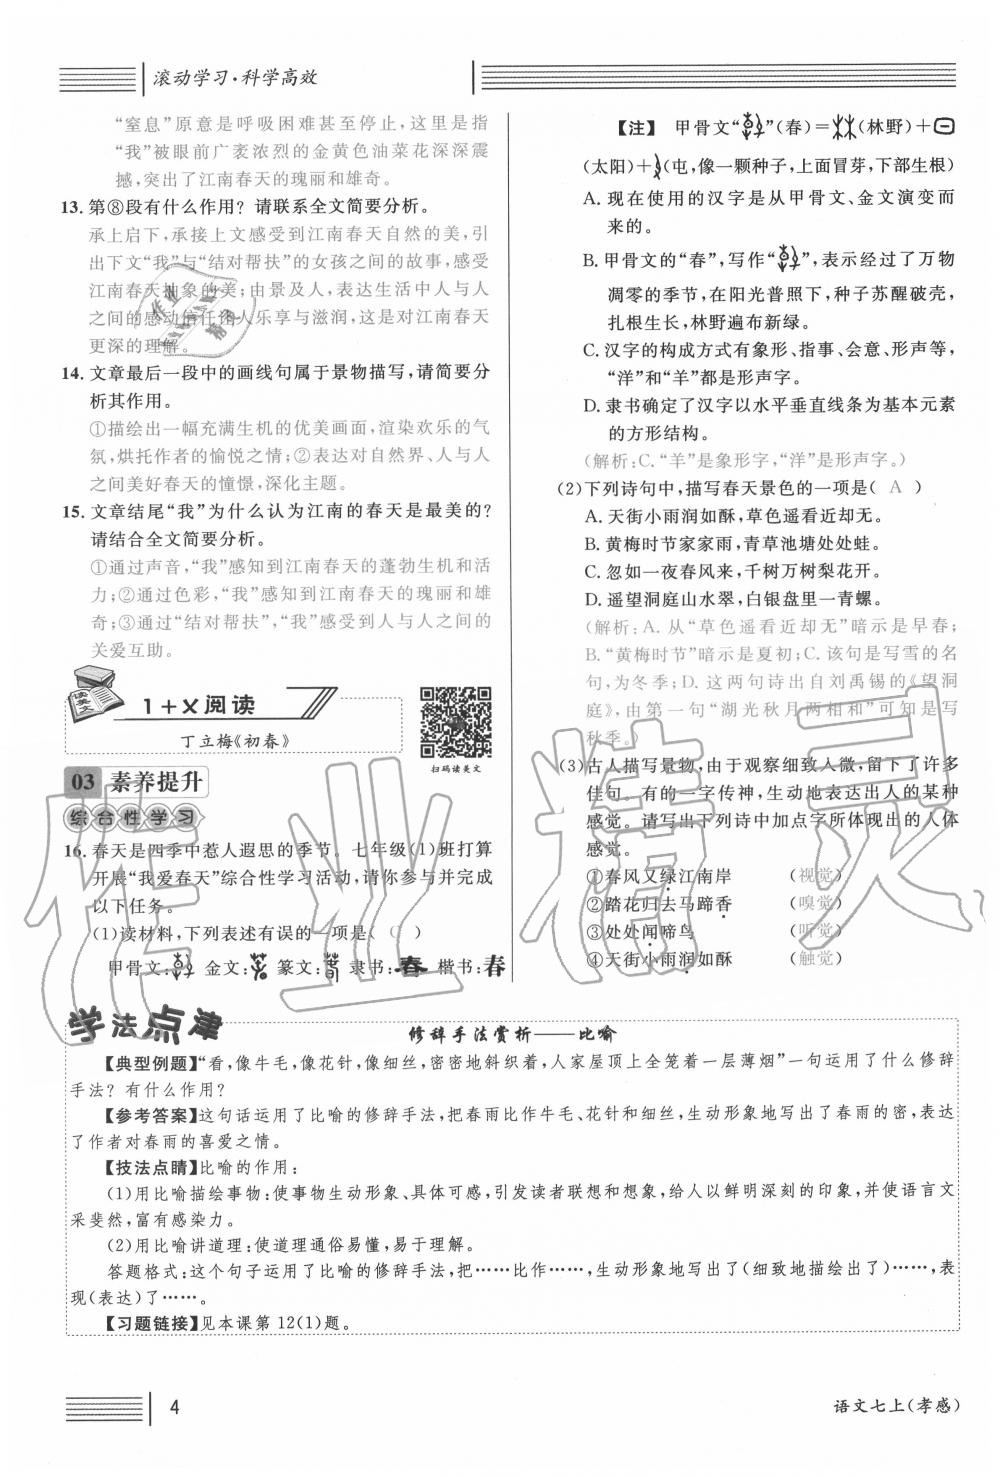 滚动学习·科学高效
“窒息”原意是呼吸困难甚至停止，这里是指
“我”被眼前广袤浓烈的金黄色油菜花深深震
撼，突出了江南春天的瑰丽和雄奇。
13. 第⑧段有什么作用？请联系全文简要分析。
承上启下，承接上文感受到江南春天自然的美，引
出下文“我”与“结对帮扶”的女孩之间的故事，感受
江南春天抽象的美；由景及人，表达生活中人与人
之间的感动信任给人乐享与滋润，这是对江南春天
更深的理解。
14. 文章最后一段中的画线句属于景物描写，请简要分
析其作用。
①描绘出一幅充满生机的优美画面，渲染欢乐的气
氛，烘托作者的愉悦之情；②表达对自然界、人与人
之间美好春天的憧憬，深化主题。
15. 文章结尾“我”为什么认为江南的春天是最美的？
请结合全文简要分析。
①通过声音，“我”感知到江南春天的蓬勃生机和活
力；②通过色彩，“我”感知到江南春天的瑰丽和雄
奇；③通过“结对帮扶”，“我”感受到人与人之间的
关爱互助。
读美文
1+X阅读
丁立梅《初春》
扫码读美文
03 素养提升
综合性学习
16. 春天是四季中惹人遐思的季节。七年级(1)班打算
开展“我爱春天”综合性学习活动，请你参与并完成
以下任务。
(1)读材料，下列表述有误的一项是( C )
甲骨文： 金文： 篆文： 隶书：春 楷书：春
【注】 甲骨文“ ”(春)＝ (林野)＋
(太阳)＋ (屯，像一颗种子，上面冒芽，下部生根)
A. 现在使用的汉字是从甲骨文、金文演变而
来的。
B. 甲骨文的“春”，写作“ ”，表示经过了万物
凋零的季节，在阳光普照下，种子苏醒破壳，
扎根生长，林野遍布新绿。
C. 汉字的构成方式有象形、指事、会意、形声等，
“洋”和“羊”都是形声字。
D. 隶书确定了汉字以水平垂直线条为基本元素
的方形结构。
(解析：C. “羊”是象形字，“洋”是形声字。)
(2)下列诗句中，描写春天景色的一项是( A )
A. 天街小雨润如酥，草色遥看近却无。
B. 黄梅时节家家雨，青草池塘处处蛙。
C. 忽如一夜春风来，千树万树梨花开。
D. 遥望洞庭山水翠，白银盘里一青螺。
(解析：A. 从“草色遥看近却无”暗示是早春；
B. “黄梅时节”暗示是夏初；C. 该句是写雪的名
句，为冬季；D. 这两句诗出自刘禹锡的《望洞
庭》，由第一句“湖光秋月两相和”可知是写
秋季。)
(3)古人描写景物，由于观察细致入微，留下了许多
佳句。有的一字传神，生动地表达出人的某种
感觉。请写出下列诗中加点字所体现出的人体
感觉。
①春风又绿江南岸 (视觉)
②踏花归去马蹄香 (嗅觉)
③处处闻啼鸟 (听觉)
④天街小雨润如酥 (触觉)
学法点津
修辞手法赏析——比喻
【典型例题】“看，像牛毛，像花针，像细丝，密密地斜织着，人家屋顶上全笼着一层薄烟”一句运用了什么修辞
手法？有什么作用？
【参考答案】这句话运用了比喻的修辞手法，把春雨比作牛毛、花针和细丝，生动形象地写出了春雨的密，表达
了作者对春雨的喜爱之情。
【技法点睛】比喻的作用：
(1)用比喻描绘事物：使事物生动形象、具体可感，引发读者联想和想象，给人以鲜明深刻的印象，并使语言文
采斐然，富有感染力。
(2)用比喻讲道理：使道理通俗易懂，易于理解。
答题格式：这个句子运用了比喻的修辞手法，把……比作……，生动形象地写出了(细致地描绘出了)……，表
现(表达)了……。
【习题链接】见本课第 12(1)题。
4
语文七上(孝感)
作业精灵